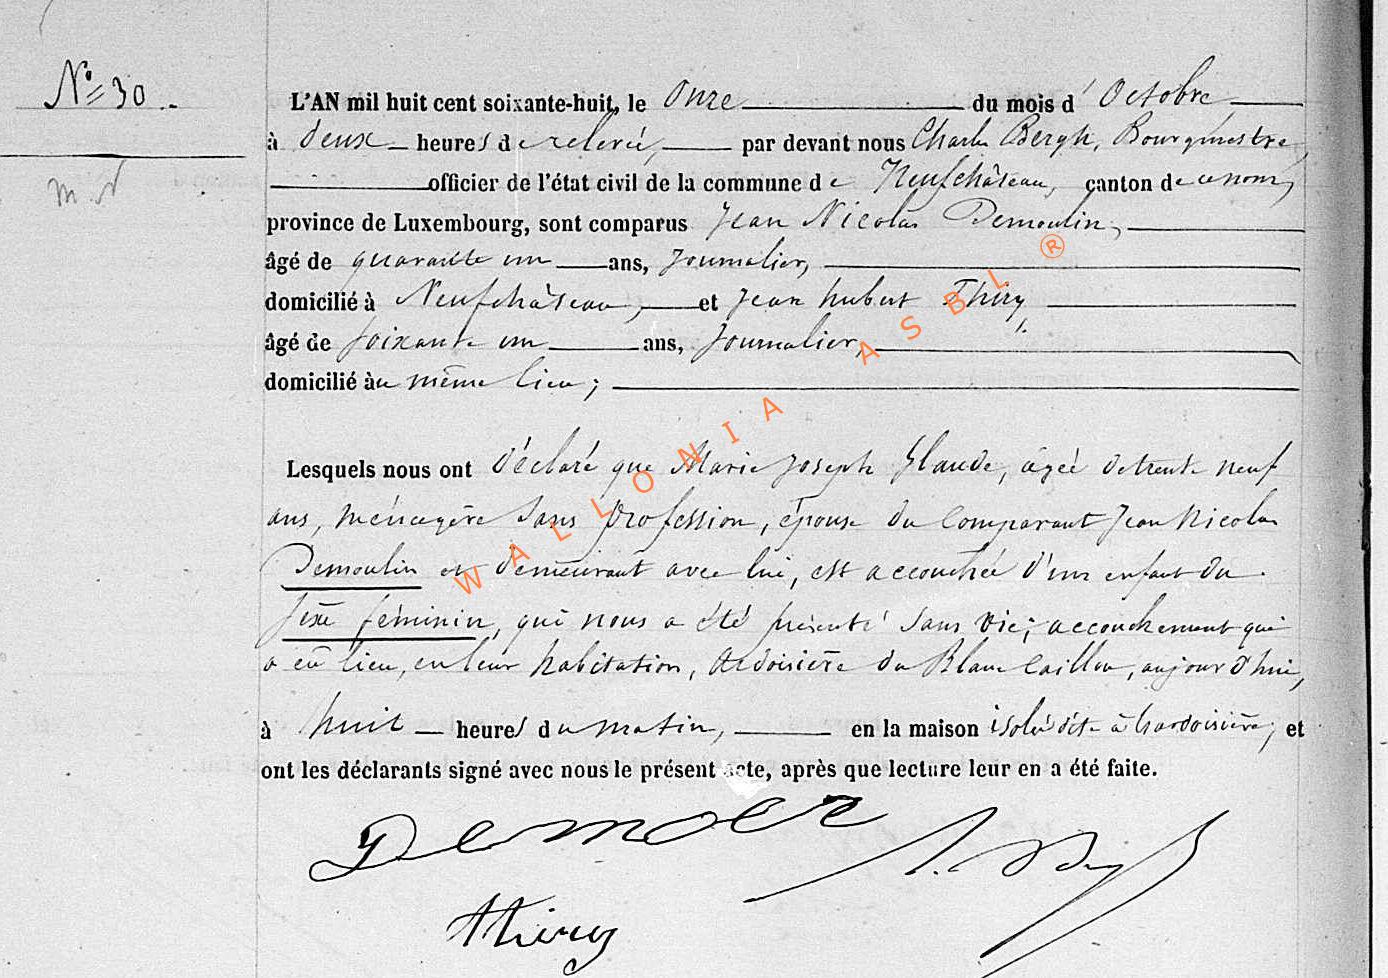 N° = 30 .
m. N
L'AN mil huit cent soixante-huit, le onze du mois d'Octobre
à deux heures de relevée, par devant nous Charles Bergh, Bourgmestre,
officier de l'état civil de la commune de Neufchâteau, canton de ce nom,
province de Luxembourg, sont comparus Jean Nicolas Demoulin,
âgé de quarante un ans, Journalier,
domicilié à Neufchâteau, et Jean hubert Thiry,
âgé de soixante un ans, Journalier,
domicilié au même lieu;
Lesquels nous ont déclaré que Marie Joseph Glaude, âgée de trente neuf
ans, ménagère sans profession, épouse du comparant Jean Nicolas
Demoulin et demeurant avec lui, est accouchée d'un enfant du
sexe féminin, qui nous a été présenté sans vie; accouchement qui
a eu lieu, en leur habitation, Ardoisière du Blanc Caillou, aujourd'hui,
à huit heures du matin, en la maison isolée dite à l'ardoisière; et
ont les déclarants signé avec nous le présent acte, après que lecture leur en a été faite.
Thiry
WALLONIA ASBL ®